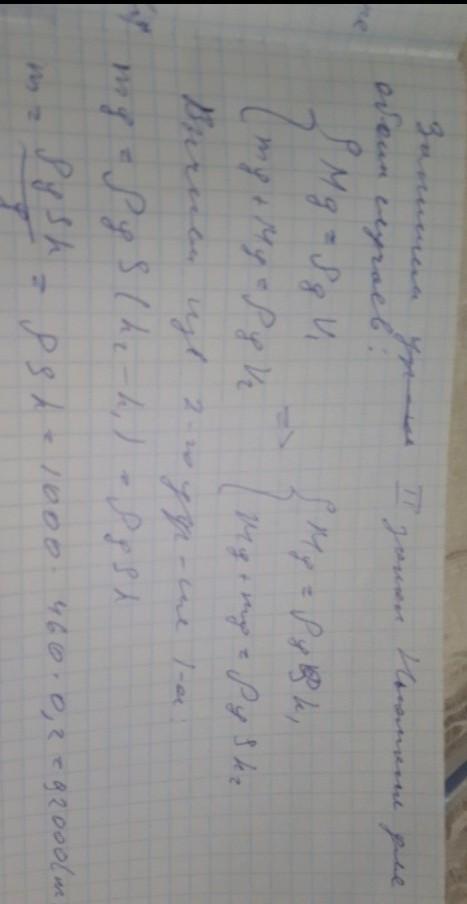 Запишем II закон Ньютона для
обоих случаев:
{ Mg = ρgV₁
{ mg + Mg = ρgV₂ ⇒ { Mg = ρgSh₁
{ Mg + mg = ρgSh₂
Вычтем из 2-го ур-ние 1-ое:
mg = ρgS(h₂ - h₁) = ρgSh
m = ρgSh/g = ρSh = 1000 · 460 · 0,2 = 92000 (т